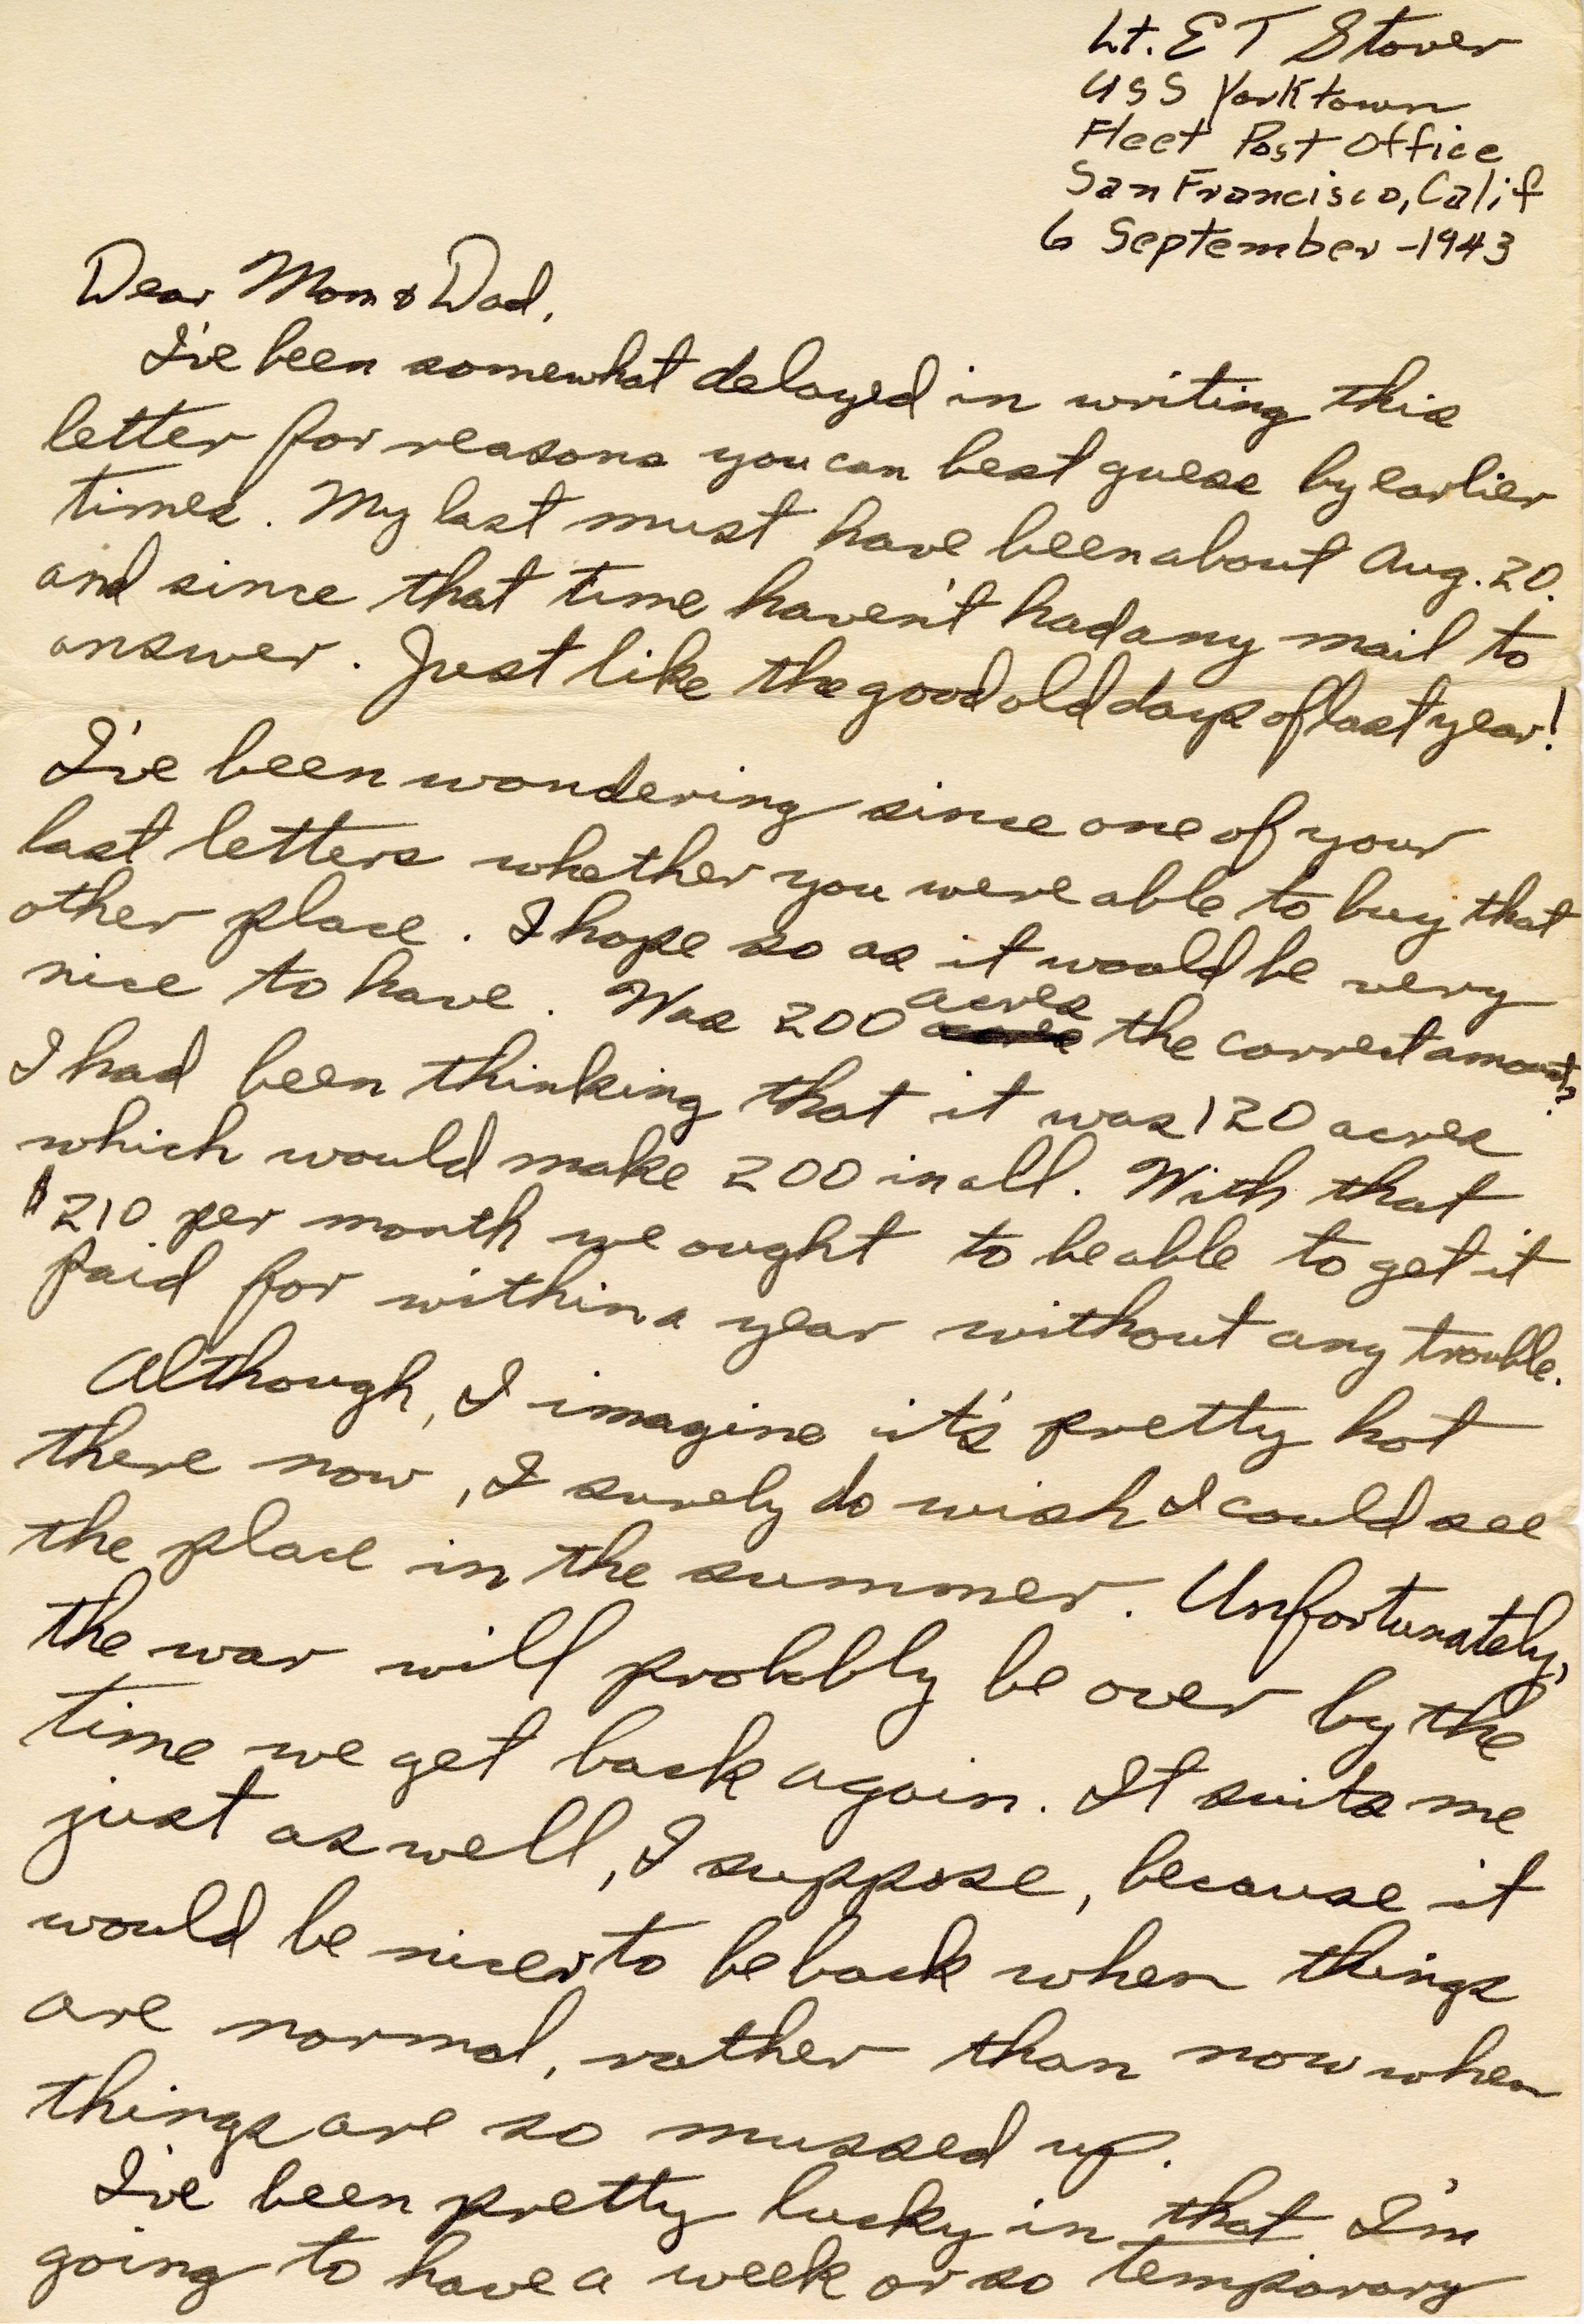 Lt. E T Stover
USS Yorktown
Fleet Post Office
San Francisco, Calif
6 September - 1943
Dear Mom & Dad,
I've been somewhat delayed in writing this
letter for reasons you can best guess by earlier
times. My last must have been about Aug. 20.
and since that time haven't had any mail to
answer. Just like the good old days of last year!
I've been wondering since one of your
last letters whether you were able to buy that
other place. I hope so as it would be very
nice to have. Was 200 acres the correct amount?
I had been thinking that it was 120 acres
which would make 200 in all. With that
$210 per month we ought to be able to get it
paid for within a year without any trouble.
Although, I imagine it's pretty hot
there now, I surely do wish I could see
the place in the summer. Unfortunately,
the war will probably be over by the
time we get back again. It suits me
just as well, I suppose, because it
would be nicer to be back when things
are normal, rather than now when
things are so mussed up.
I've been pretty lucky in that I'm
going to have a week or so temporary